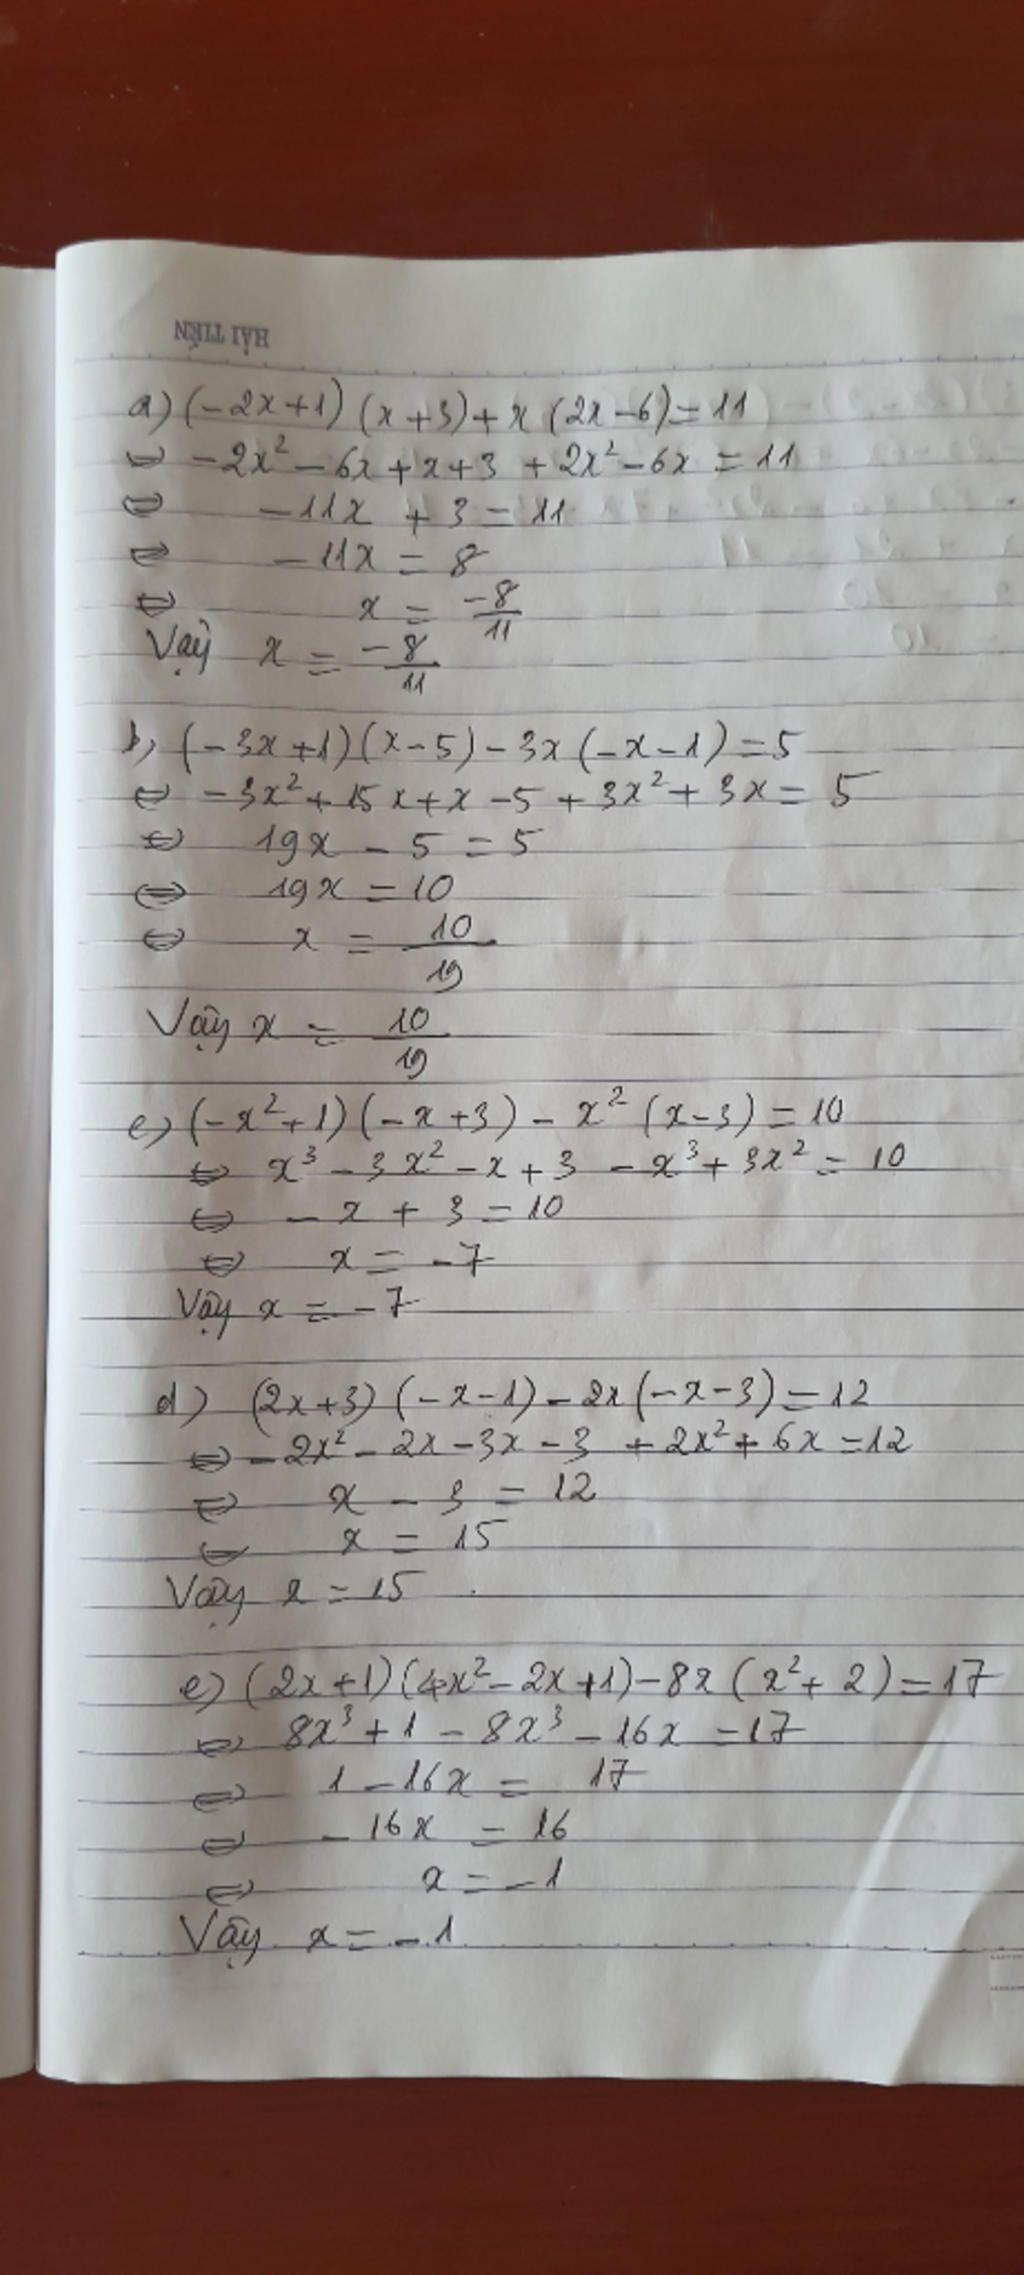 HẢI TIẾN
a) (-2x+1) (x+3) + x (2x-6) = 11
⇔ -2x² - 6x + x + 3 + 2x² - 6x = 11
⇔ -11x + 3 = 11
⇔ -11x = 8
⇔ x = -8/11
Vậy x = -8/11
b, (-3x+1)(x-5) - 3x(-x-1) = 5
⇔ -3x² + 15x + x - 5 + 3x² + 3x = 5
⇔ 19x - 5 = 5
⇔ 19x = 10
⇔ x = 10/19
Vậy x = 10/19
c) (-x²+1)(-x+3) - x² (x-3) = 10
⇔ x³ - 3x² - x + 3 - x³ + 3x² = 10
⇔ -x + 3 = 10
⇔ x = -7
Vậy x = -7
d) (2x+3) (-x-1) - 2x(-x-3) = 12
⇔ -2x² - 2x - 3x - 3 + 2x² + 6x = 12
⇔ x - 3 = 12
⇔ x = 15
Vậy x = 15
e) (2x+1)(4x²-2x+1) - 8x (x²+2) = 17
⇔ 8x³ + 1 - 8x³ - 16x = 17
⇔ 1 - 16x = 17
⇔ -16x = 16
⇔ x = -1
Vậy x = -1